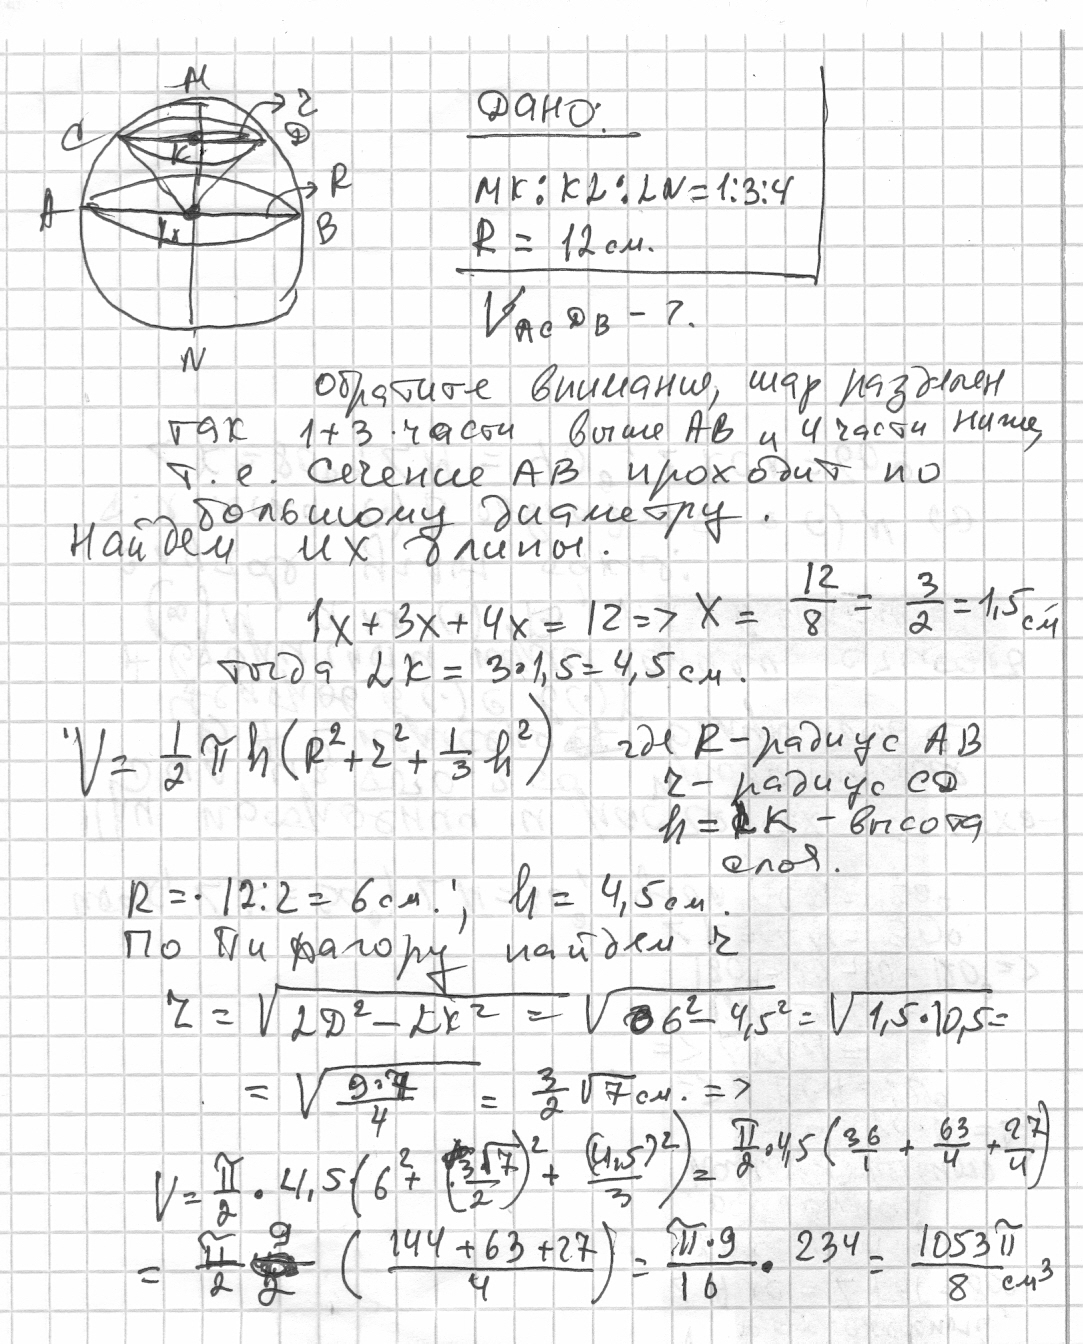 M
C
r
D
K
A
R
B
Lx
N
ДАНО:
MK:KL:LN=1:3:4
R = 12 см.
V ACDB - ?.
Обратите внимания, шар разделен
так 1+3 части выше AB и 4 части ниже,
т.е. сечение AB проходит по
большому диаметру.
Найдем их длины.
1x+3x+4x=12=> x = 12/8 = 3/2 = 1,5 см
тогда LK = 3·1,5=4,5 см.
V = 1/2 π h (R²+r²+1/3 h²) где R-радиус AB
r - радиус CD
h = LK - высота
слоя.
R = 12:2 = 6 см.; h = 4,5 см.
По Пифагору найдем r
r = √(LD² - LK²) = √(6² - 4,5²) = √(1,5·10,5) =
= √(9·7/4) = 3/2 √7 см. =>
V = π/2 · 4,5 (6² + (3√7/2)² + (4,5)²/3) = π/2 · 4,5 (36/1 + 63/4 + 27/4)
= π/2 9/2 ((144+63+27)/4) = π·9/16 · 234 = 1053π/8 см³